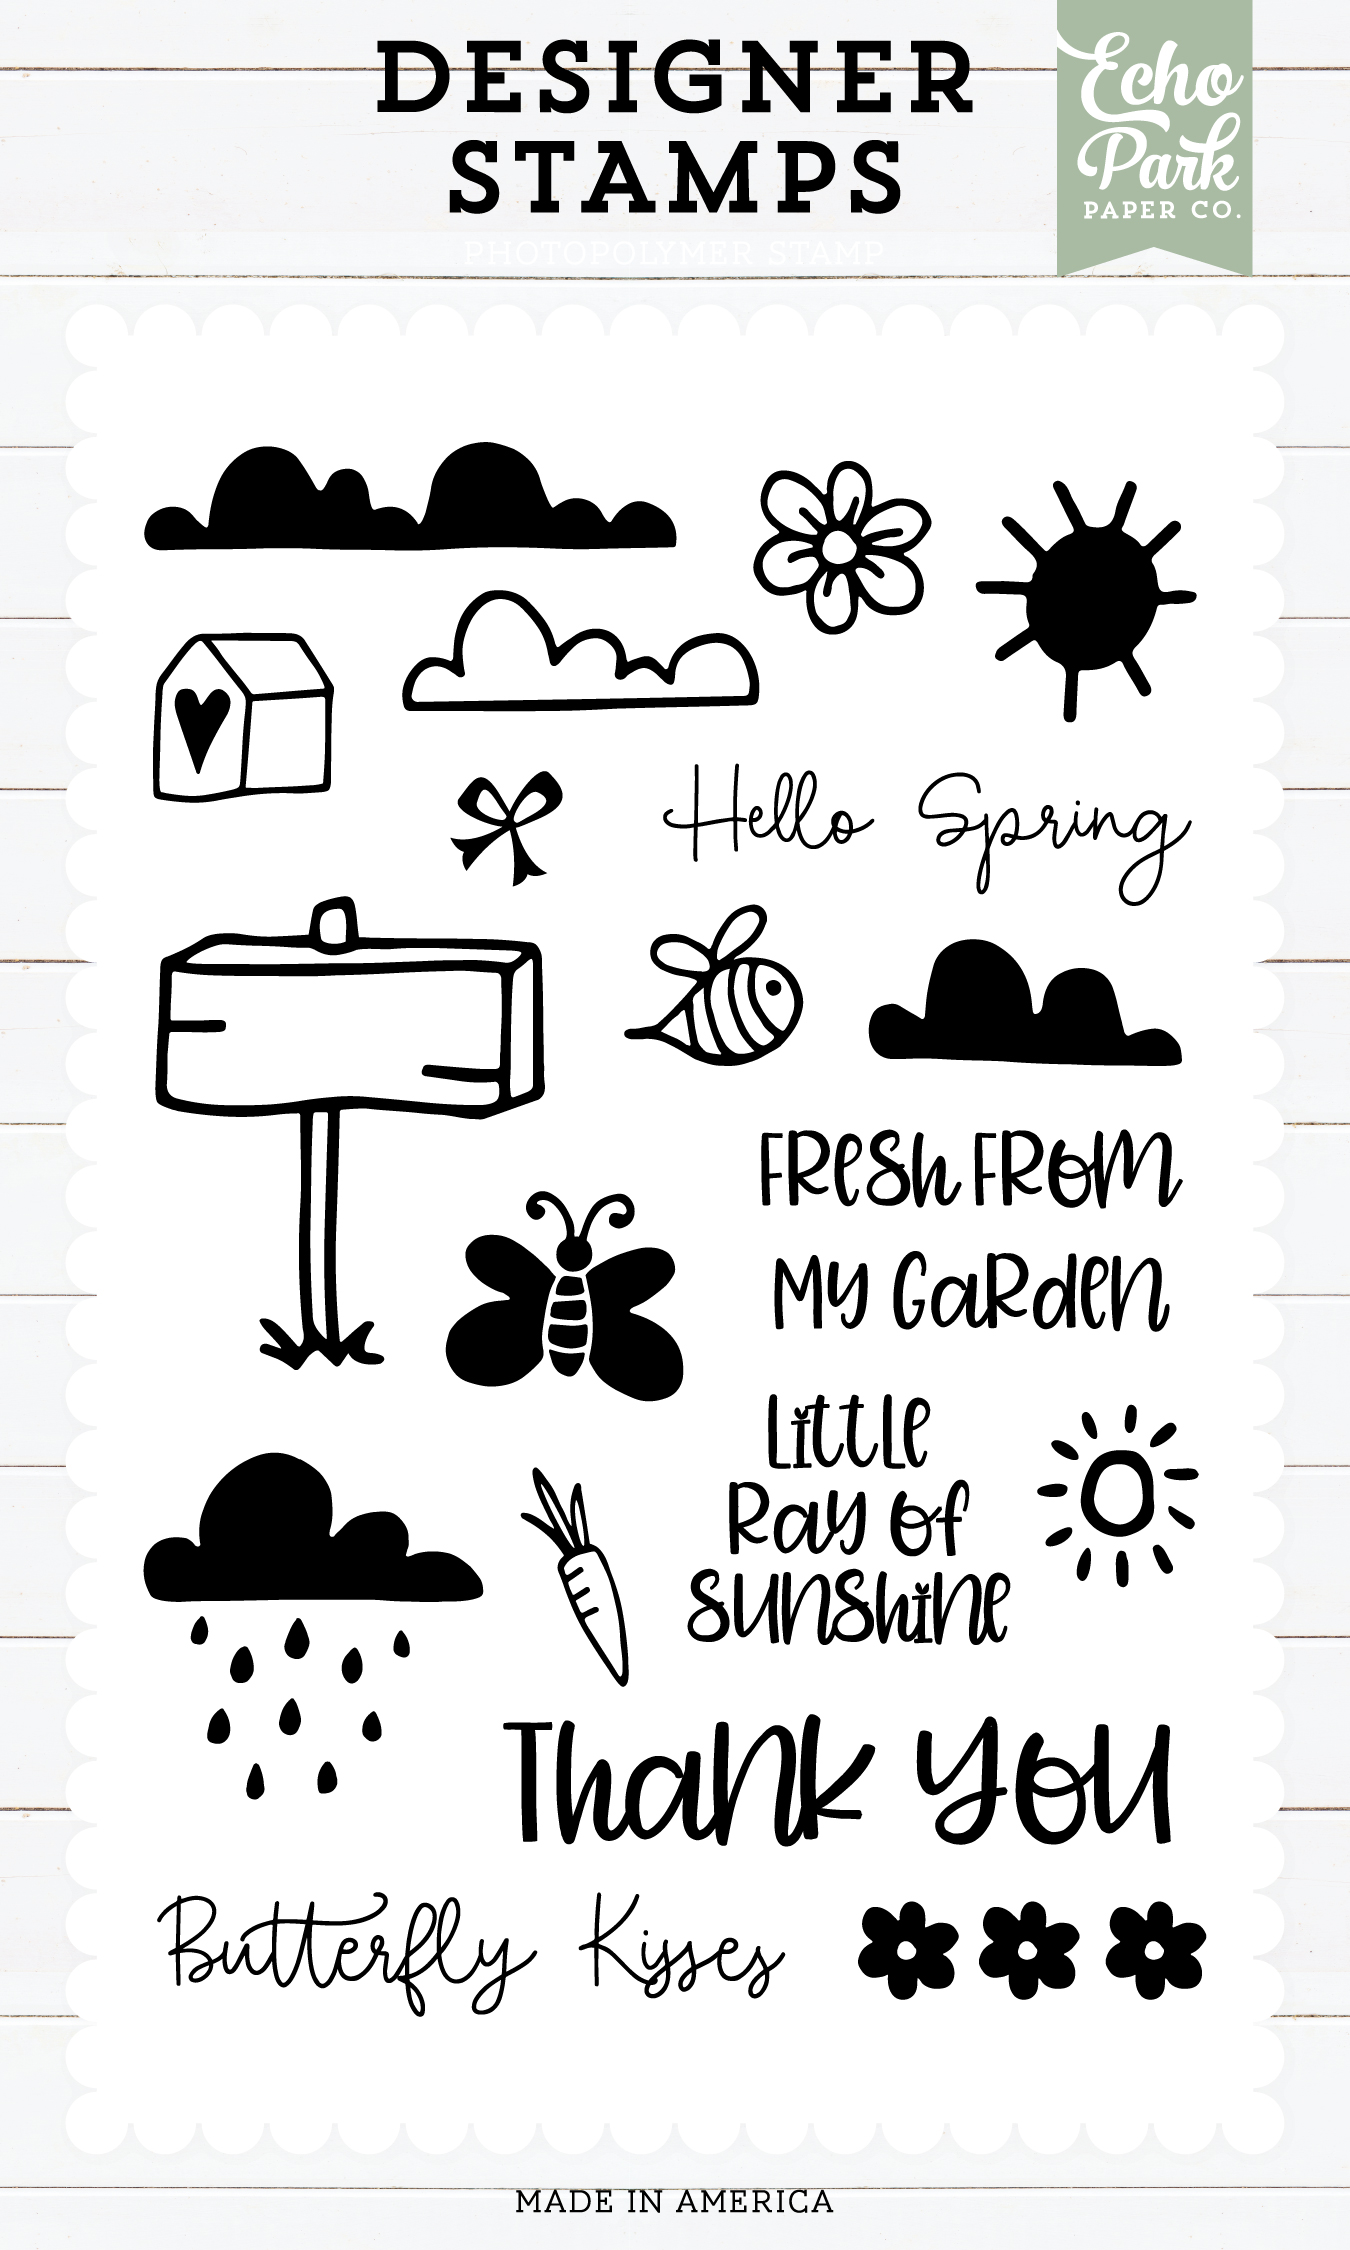 DESIGNER
STAMPS
PHOTOPOLYMER STAMP
Echo
Park
PAPER CO.
Hello Spring
FResh FROM
My GaRden
Little
Ray of
sunshine
Thank you
Butterfly Kisses
MADE IN AMERICA